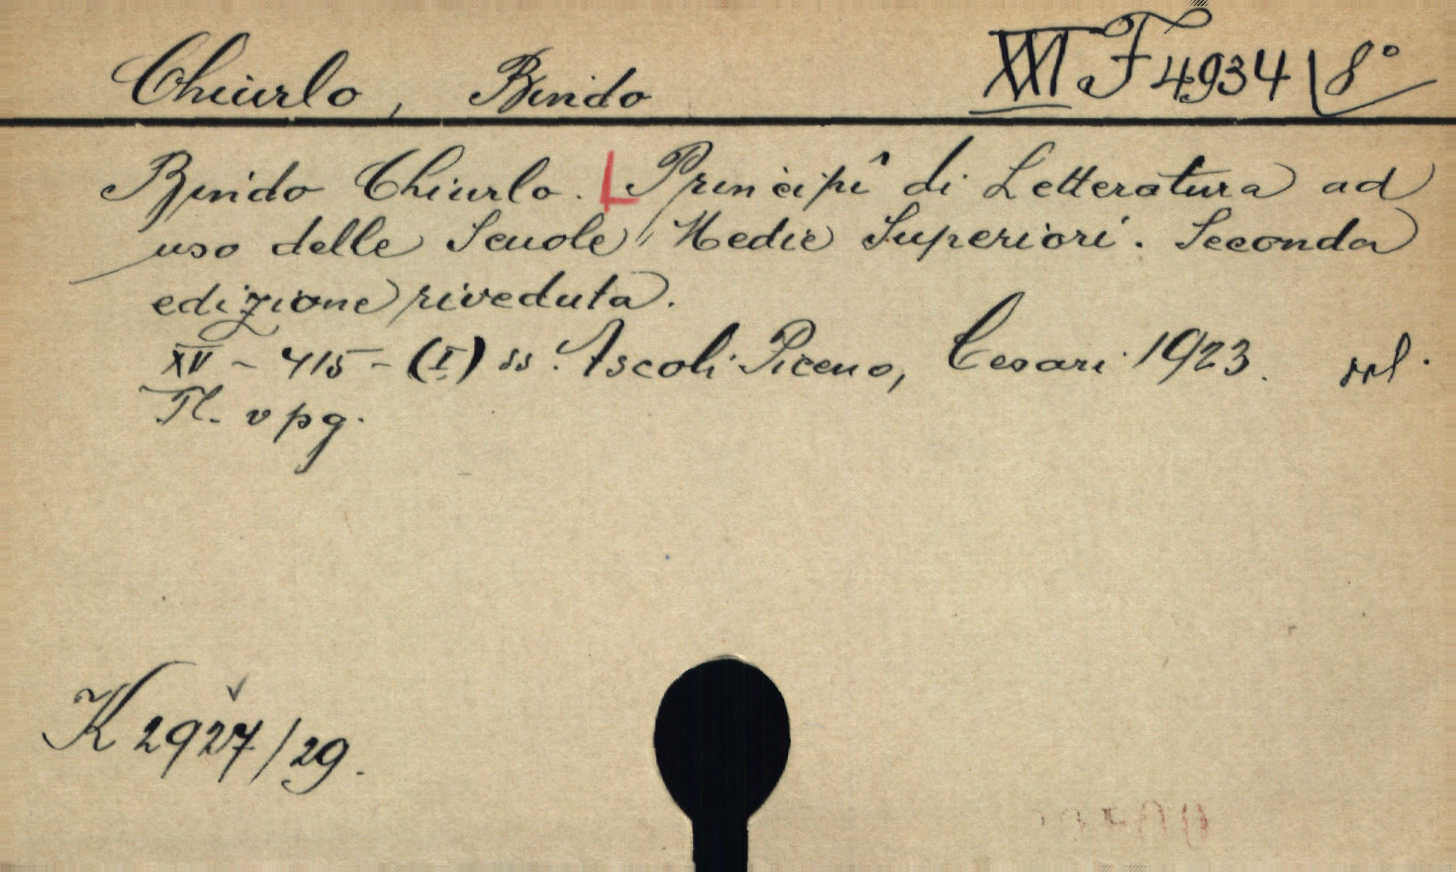 Chiurlo, Bindo XVI F 4934 / 8°
Bindo Chiurlo. Principî di Letteratura ad
uso delle Scuole Medie Superiori. Seconda
edizione riveduta.
XV - 415 - (I) ss. Ascoli Piceno, Cesari 1923.
Tl. v pg.
K 2927/29.